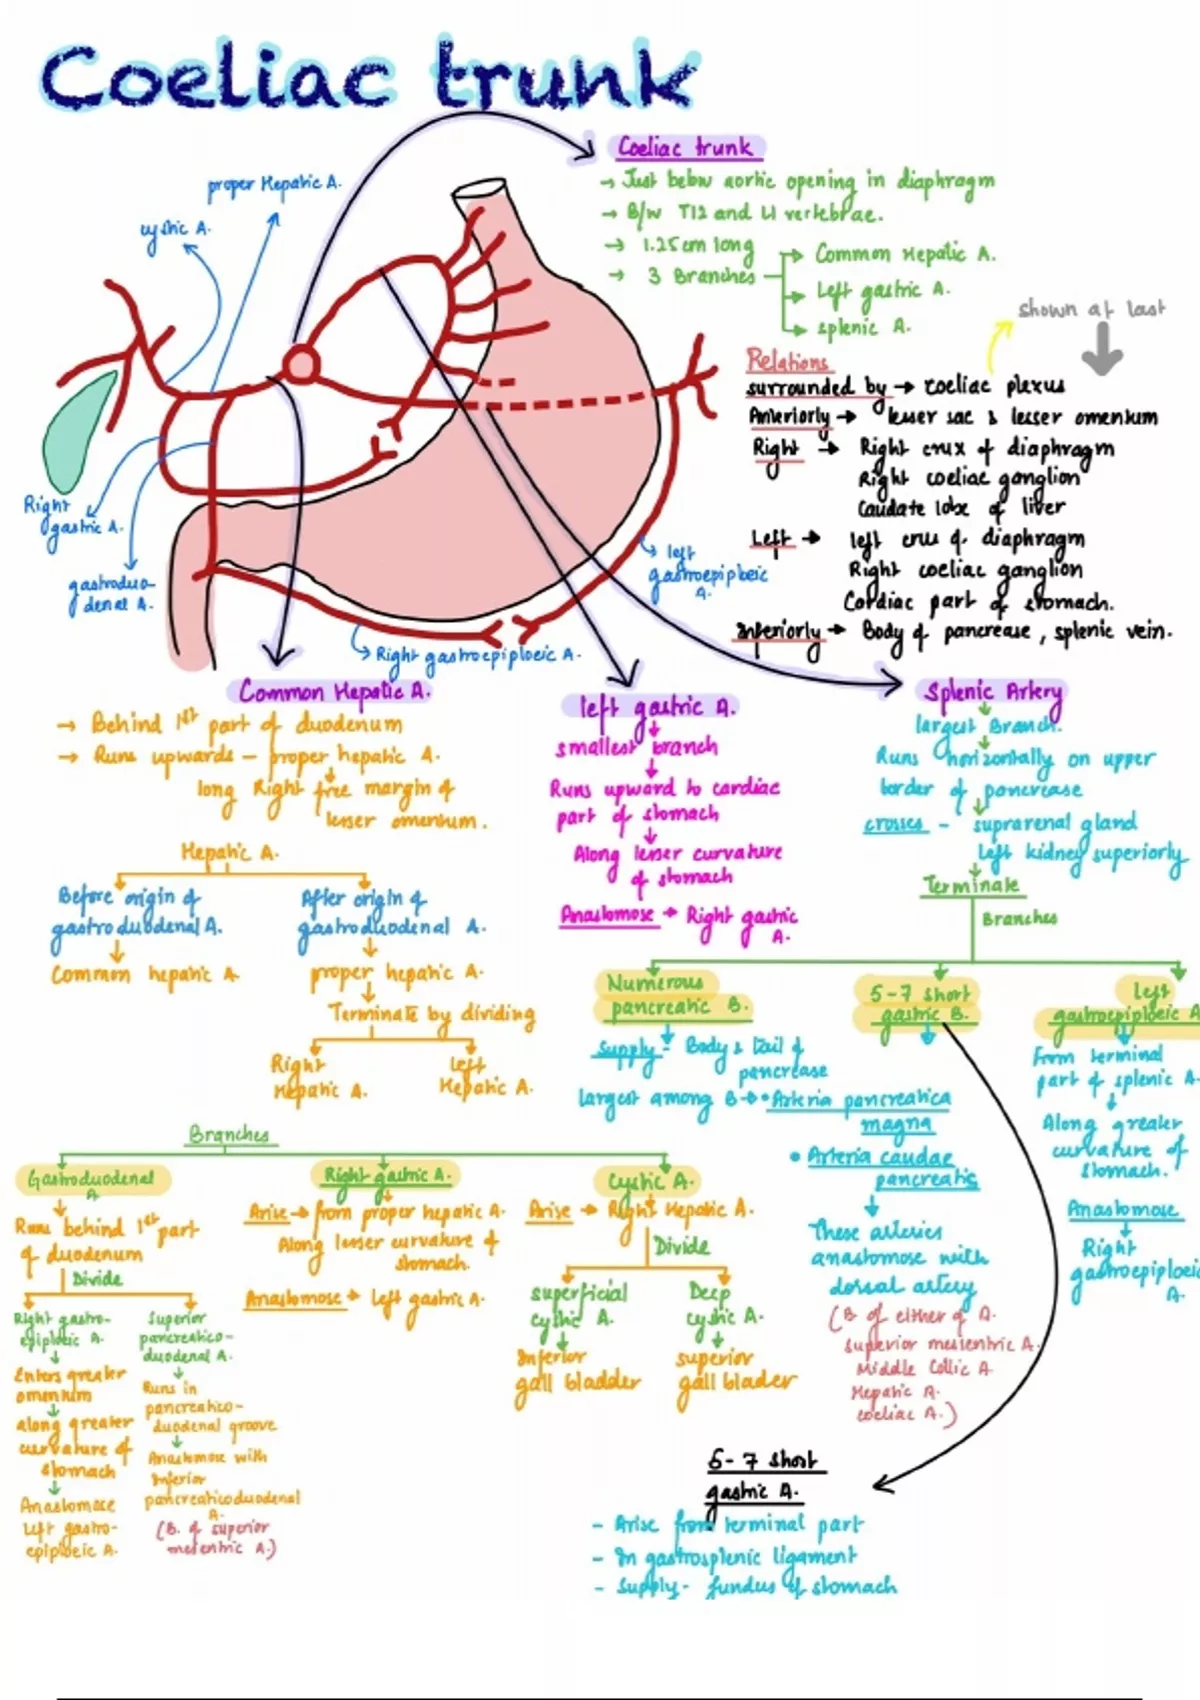 Coeliac trunk
Coeliac trunk
→ Just below aortic opening in diaphragm
→ B/w T12 and L1 vertebrae.
→ 1.25cm long
→ 3 Branches
Common Hepatic A.
Left gastric A.
splenic A.
proper Hepatic A.
cystic A.
Right
gastric A.
gastroduo-
denal A.
left
gastroepiploeic
A.
Right gastroepiploeic A.
shown at last
Relations
surrounded by → coeliac plexus
Anteriorly → lesser sac & lesser omentum
Right → Right crux of diaphragm
Right coeliac ganglion
Caudate lobe of liver
Left → left crus of diaphragm
Right coeliac ganglion
Cardiac part of stomach.
Inferiorly → Body of pancrease, splenic vein.
Common Hepatic A.
→ Behind 1st part of duodenum
→ Runs upwards – proper hepatic A.
long Right free margin of
lesser omentum.
Hepatic A.
Before origin of
gastroduodenal A.
Common hepatic A
After origin of
gastroduodenal A.
proper hepatic A.
Terminate by dividing
Right
Hepatic A.
Left
Hepatic A.
left gastric A.
smallest branch
Runs upward to cardiac
part of stomach
Along lesser curvature
of stomach
Anastomose → Right gastric
A.
Splenic Artery
largest Branch.
Runs horizontally on upper
border of pancrease
crosses - suprarenal gland
Left kidney superiorly
Terminate
Branches
Numerous
pancreatic B.
supply - Body & tail of
pancrease
largest among B → • Arteria pancreatica
magna
• Arteria caudae
pancreatis
These arteries
anastomose with
dorsal artery
(B of either of A.
superior mesentric A.
Middle Collic A.
Hepatic A.
coeliac A.)
5-7 short
gastric B.
left
gastroepiploeic A
From terminal
part of splenic A.
Along greater
curvature of
stomach.
Anastomose
Right
gastroepiploeic
A.
Branches
Gastroduodenal
A
Runs behind 1st part
of duodenum
Divide
Right gastro-
epiploeic A.
Enters greater
omentum
along greater
curvature of
stomach
Anastomose
Left gastro-
epiploeic A.
Superior
pancreatico-
duodenal A.
Runs in
pancreatico-
duodenal groove
Anastomose with
Inferior
pancreaticoduodenal
A.
(B. of superior
mesentric A.)
Right gastric A.
Arise → from proper hepatic A.
Along lesser curvature of
stomach.
Anastomose → Left gastric A.
Cystic A.
Arise → Right Hepatic A.
Divide
superficial
cystic A.
Inferior
gall bladder
Deep
cystic A.
superior
gall blader
5-7 short
gastric A.
- Arise from terminal part
- In gastrosplenic ligament
- Supply - fundus of stomach